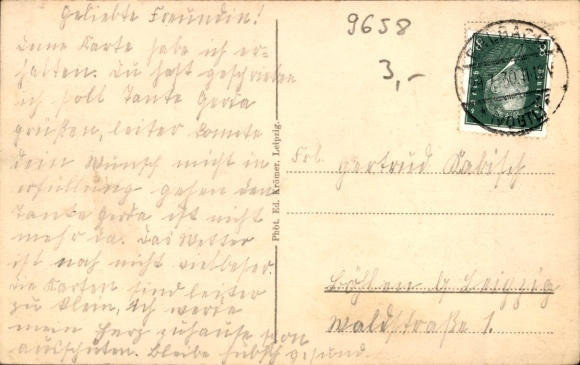 Geliebte Freundin!
Deine Karte habe ich er-
halten. Du hast geschrieben
ich soll Tante Gerda
grüßen, leiter konnte
dein Wunsch nicht in
erfüllung gehen den
Tante Gerda ist nicht
mehr da. Das Wetter
ist noh nicht vielbeser.
Die Karten sind leiter
zu klein, ich werde
mein Herz zuhause schon
ausschüten. Bleibe hübsch gesund.
9658
3,-
Phot. Ed. Krömer, Leipzig.
Frl. Gertrud Kabisch
Böhlen b Leipzig
Waldstraße 1.